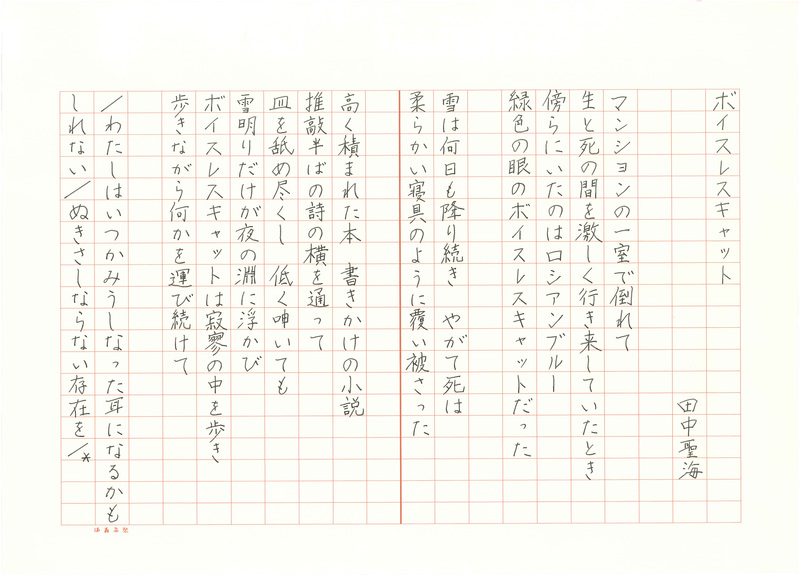 ボイスレスキャット
田中聖海
マンションの一室で倒れて
生と死の間を激しく行き来していたとき
傍らにいたのはロシアンブルー
緑色の眼のボイスレスキャットだった
雪は何日も降り続き　やがて死は
柔らかい寝具のように覆い被さった
高く積まれた本　書きかけの小説
推敲半ばの詩の横を通って
皿を舐め尽くし　低く呻いても
雪明りだけが夜の淵に浮かび
ボイスレスキャットは寂寥の中を歩き
歩きながら何かを運び続けて
／わたしはいつかみうしなった耳になるかも
しれない／ぬきさしならない存在を／*